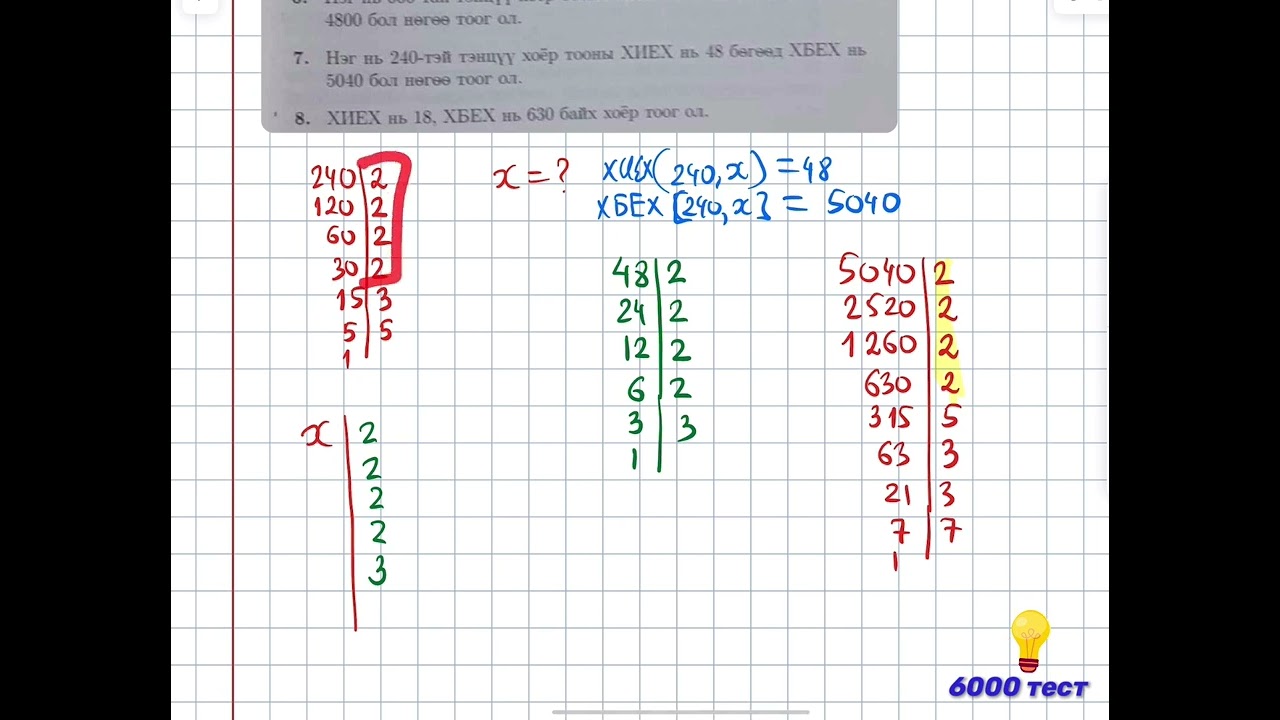 4800 бол нөгөө тоог ол.
7. Нэг нь 240-тэй тэнцүү хоёр тооны ХИЕХ нь 48 бөгөөд ХБЕХ нь
5040 бол нөгөө тоог ол.
8. ХИЕХ нь 18, ХБЕХ нь 630 байх хоёр тоог ол.
240 2
120 2
60 2
30 2
15 3
5 5
1
x = ?
ХИЕХ(240, x) = 48
ХБЕХ [240, x] = 5040
48 2
24 2
12 2
6 2
3 3
1
5040 2
2520 2
1260 2
630 2
315 5
63 3
21 3
7 7
1
x 2
2
2
2
3
6000 тест